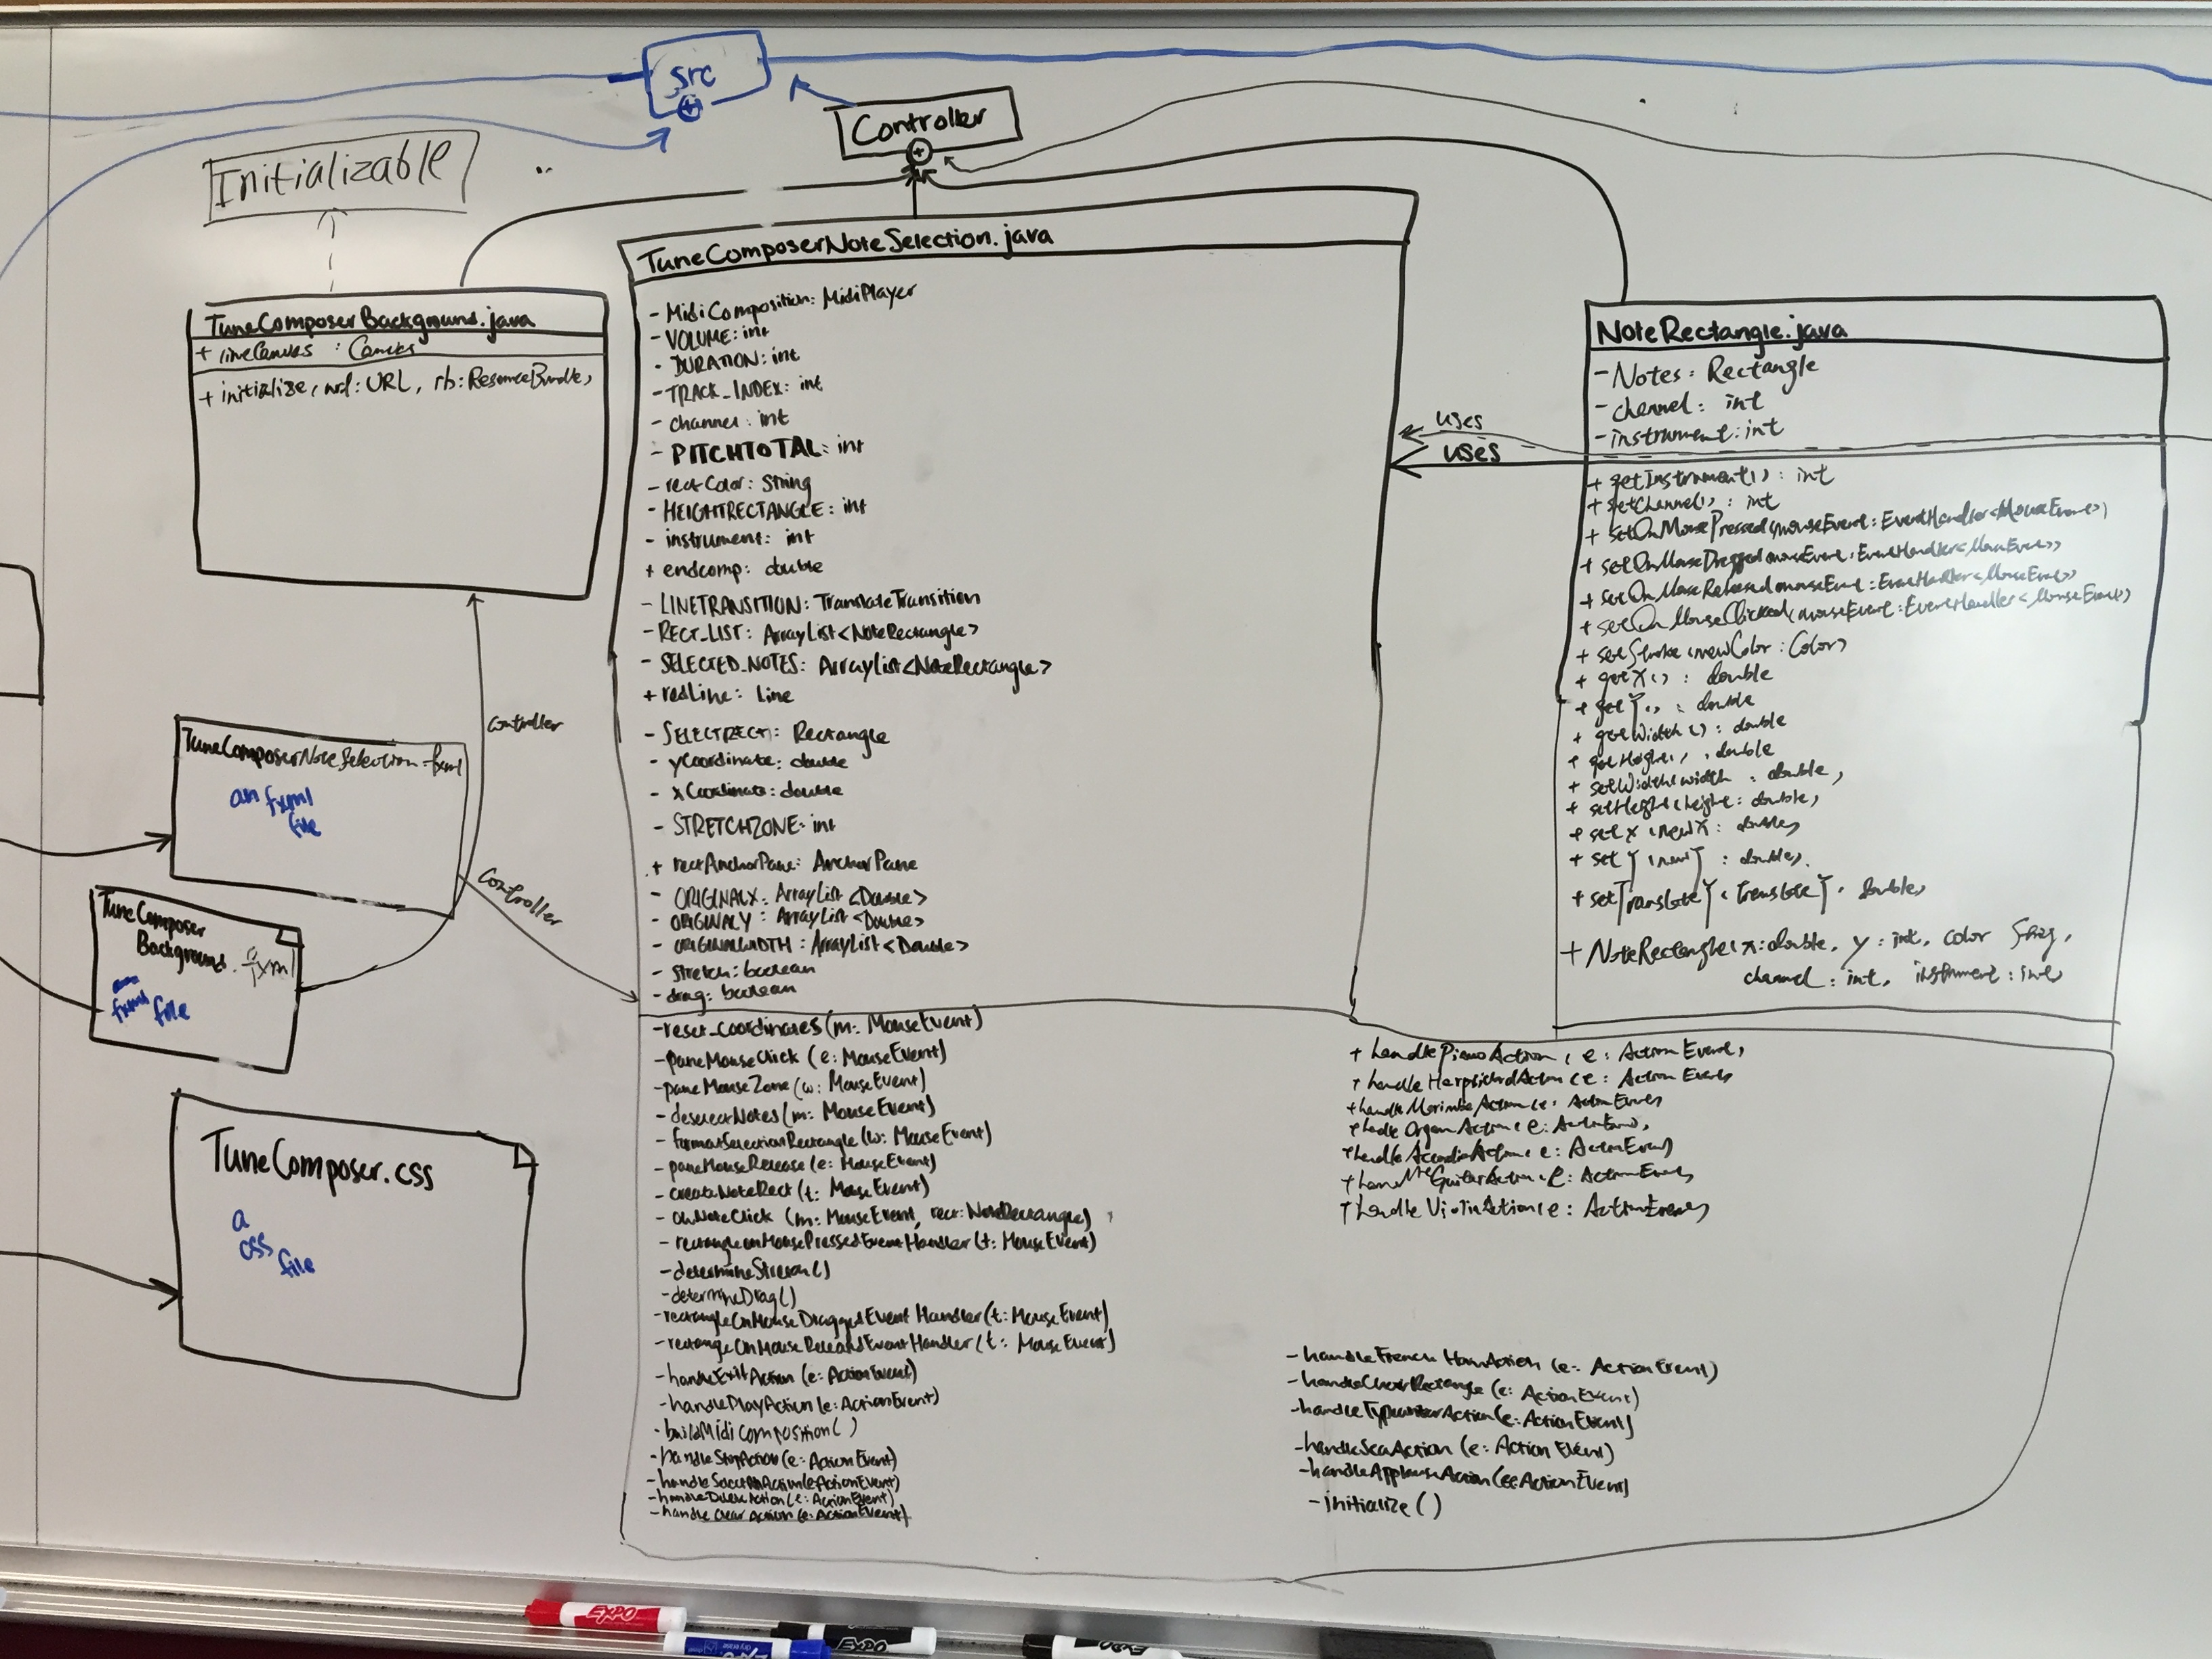 src
+
Controller
+
Initializable
TuneComposerBackground.java
+ lineCanvas : Canvas
+ initialize( url: URL, rb: ResourceBundle)
TuneComposerNoteSelection.java
- MidiComposition: MidiPlayer
- VOLUME: int
- DURATION: int
- TRACK_INDEX: int
- channel: int
- PITCHTOTAL: int
- rectColor: String
- HEIGHTRECTANGLE: int
- instrument: int
+ endcomp: double
- LINETRANSITION: TranslateTransition
- RECT_LIST: ArrayList<NoteRectangle>
- SELECTED_NOTES: ArrayList<NoteRectangle>
+ redLine: Line
- SELECTRECT: Rectangle
- yCoordinate: double
- xCoordinate: double
- STRETCHZONE: int
+ rectAnchorPane: AnchorPane
- ORIGINALX: ArrayList<Double>
- ORIGINALY: ArrayList<Double>
- ORIGINALWIDTH: ArrayList<Double>
- stretch: boolean
- drag: boolean
- reset_coordinates(m: MouseEvent)
- paneMouseClick (e: MouseEvent)
- paneMouseZone (w: MouseEvent)
- deselectNotes(m: MouseEvent)
- formatSelectionRectangle (w: MouseEvent)
- paneMouseRelease (e: MouseEvent)
- createNoteRect(t: MouseEvent)
- onNoteClick (m: MouseEvent, rect: NoteRectangle)
- rectangleonMousePressedEventHandler(t: MouseEvent)
- determineStretch()
- determineDrag()
- rectangleOnMouseDraggedEventHandler(t: MouseEvent)
- rectangeOnMouseReleasedEventHandler(t: MouseEvent)
- handleExitAction (e: ActionEvent)
- handlePlayAction (e: ActionEvent)
- buildMidiComposition( )
- handleStopAction(e: ActionEvent)
- handleSelectAllAction(e: ActionEvent)
- handleDeleteAction(e: ActionEvent)
- handleClearAction(e: ActionEvent)
+ handlePianoAction( e: ActionEvent)
+ handleHarpsichordAction( e: ActionEvent)
+ handleMarimbaAction( e: ActionEvent)
+ handleOrganAction( e: ActionEvent)
+ handleAccordionAction( e: ActionEvent)
+ handleGuitarAction( e: ActionEvent)
+ handleViolinAction( e: ActionEvent)
- handleFrenchHornAction (e: ActionEvent)
- handleClearRectangle (e: ActionEvent)
- handleTypewriterAction(e: ActionEvent)
- handleSeaAction (e: ActionEvent)
- handleApplauseAction(e: ActionEvent)
- initialize( )
uses
uses
NoteRectangle.java
- Notes: Rectangle
- channel: int
- instrument: int
+ getInstrument() : int
+ getChannel() : int
+ setOnMousePressed(mouseEvent: EventHandler<MouseEvent>)
+ setOnMouseDragged(mouseEvent: EventHandler<MouseEvent>)
+ setOnMouseReleased(mouseEvent: EventHandler<MouseEvent>)
+ setOnMouseClicked(mouseEvent: EventHandler<MouseEvent>)
+ setStroke(newColor: Color)
+ getX() : double
+ getY() : double
+ getWidth() : double
+ getHeight() : double
+ setWidth(width : double)
+ setHeight(height: double)
+ setX (newX: double)
+ setY (newY : double)
+ setTranslateY(translateY: double)
+ NoteRectangle(x: double, y: int, color String,
channel: int, instrument: int
TuneComposerNoteSelection.fxml
an fxml
file
Controller
Controller
TuneComposer
Background.fxml
an
fxml file
TuneComposer.css
a
css
file
EXPO
EXPO
EXPO